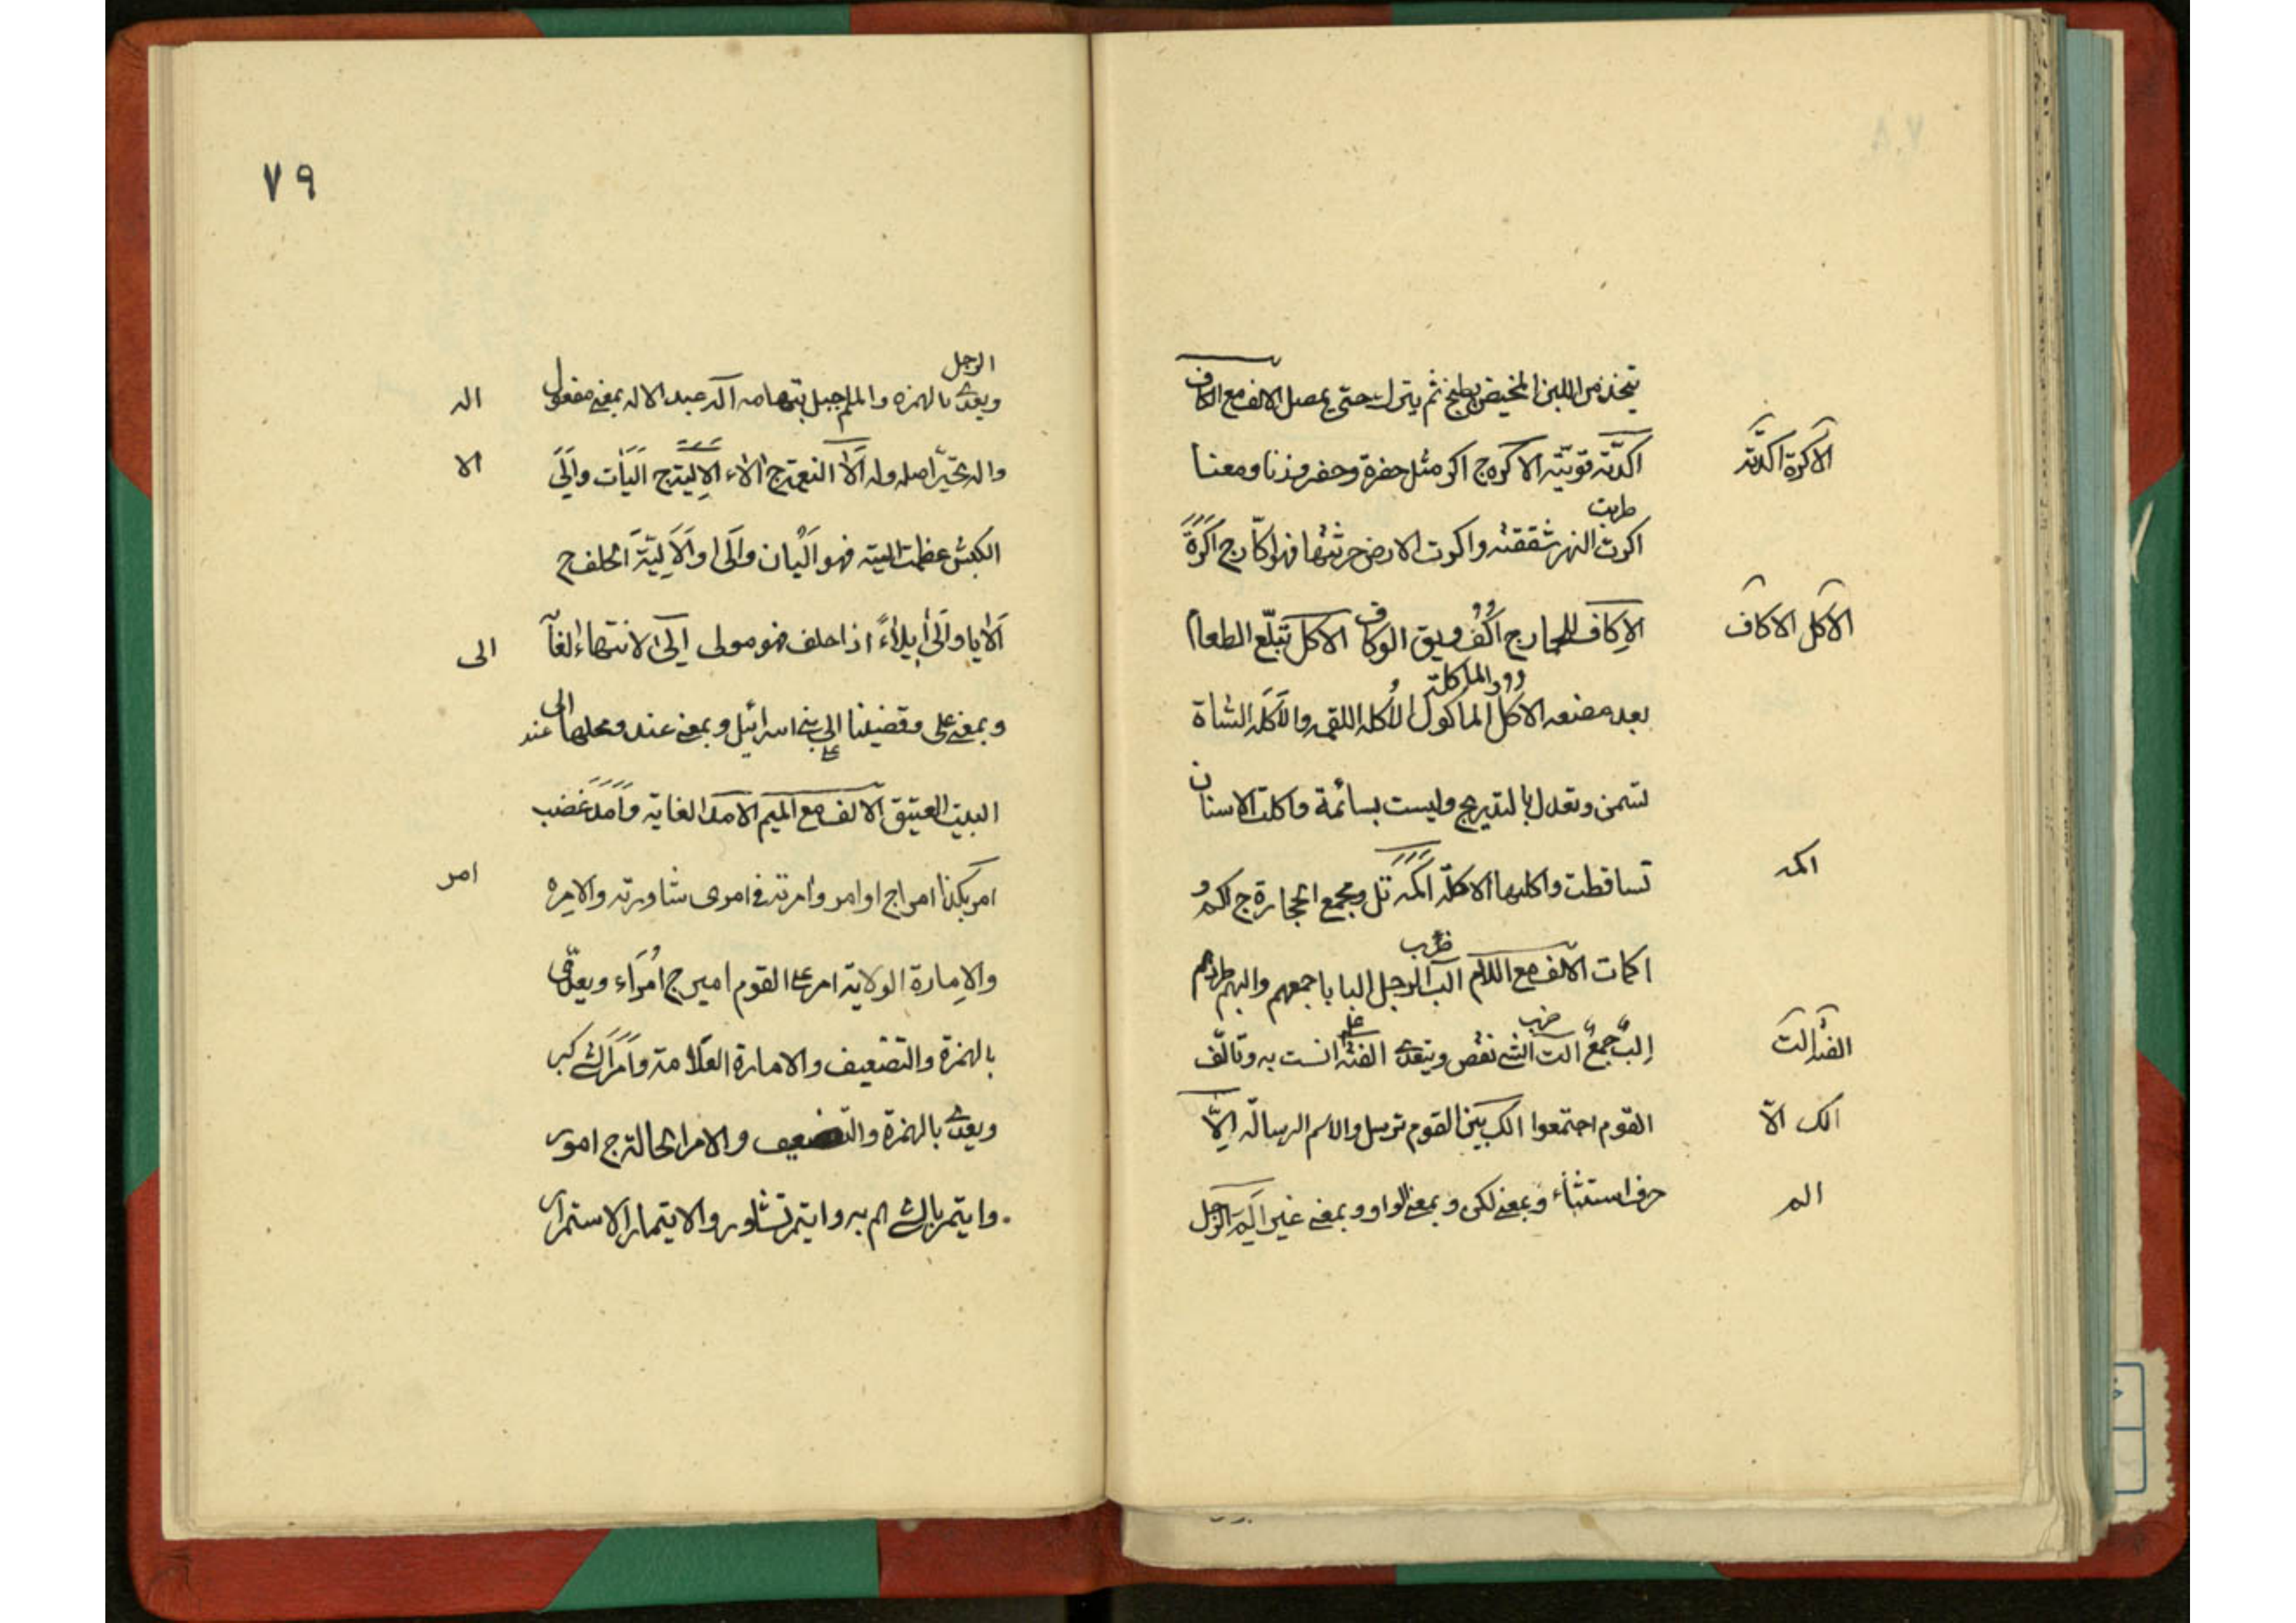 يتخذ من اللبن المخيض يطبخ ثم يترك حتى يمصل الالف مع الكاف
الاكرة اكدته
اكدّته قوّيته الاكرة ج اكر مثل حفرة وحفر وزنا ومعنا
ضربت
اكرت النهر شققته واكرت الارض حرثتها فهو اكّار ج اَكَرَةٌ
الاكل الاكاف
الاِكاف للحمار ج اُكُف ويق الوكاف الاكل تبلّع الطعام
بعد مضغه الاكل الماكول المأكلة الاُكله اللقمه والاَكَله الشاة
تسمن وتعدل بالتدريج وليست بسائمة واكلت الاسنان
اكمه
تساقطت واكلتها الاكلة اَكَمَه تل ومجمع الحجارة ج اكم و
ضرب
اكمات الالف مع اللام الب الرجل البا باجمعهم والبهم طردهم
الفته الت
ضرب
اِلبٌ جمعٌ الت الشئ نقص ويتعدى الفته انست به وتالّف
الك الاّ
القوم اجتمعوا الك بين القوم ترسل والاسم الرسالة اِلاّ
الم
حرف استثناء وبمعنى لكن وبمعنى الواو وبمعنى غير اَلِمَ الرجل
٧٩
الرجل
ويعدى بالهمزه والملم جبل بتهامه اله عبد الاله بمعنى مفعول
اله
واله تحيّر اصله وله اَلاَ النعمة ج الاء الاِلية ج اَلَيَات واَلَيَ
الا
الكبش عظمت اليته فهو اَلْيان واَلَى والاَلِيَّة الحلف ج
اَلايا واَلى ايلاءً اذا حلف فهو مولى اِلَى لانتهاء الغاَ
الى
وبمعنى على وقضينا الى بنى اسرائيل وبمعنى عند ومحلها الى عند
على
البيت العتيق الالف مع الميم الامد الغاية واَمَدَ غضب
امر بكذا امرا ج اوامر وامرته فى امرى شاورته والامره
امر
والاِمارة الولاية امر على القوم امير ج اُمَرَاء ويعدّى
بالهمزة والتضعيف والامارة العلامة واَمَرَ الشئ كبر
ويعدى بالهمزة والتضعيف والامر الحالة ج امور
وايتمر بالشئ هم به وايتمر تشاور والايتمار الاستمرار